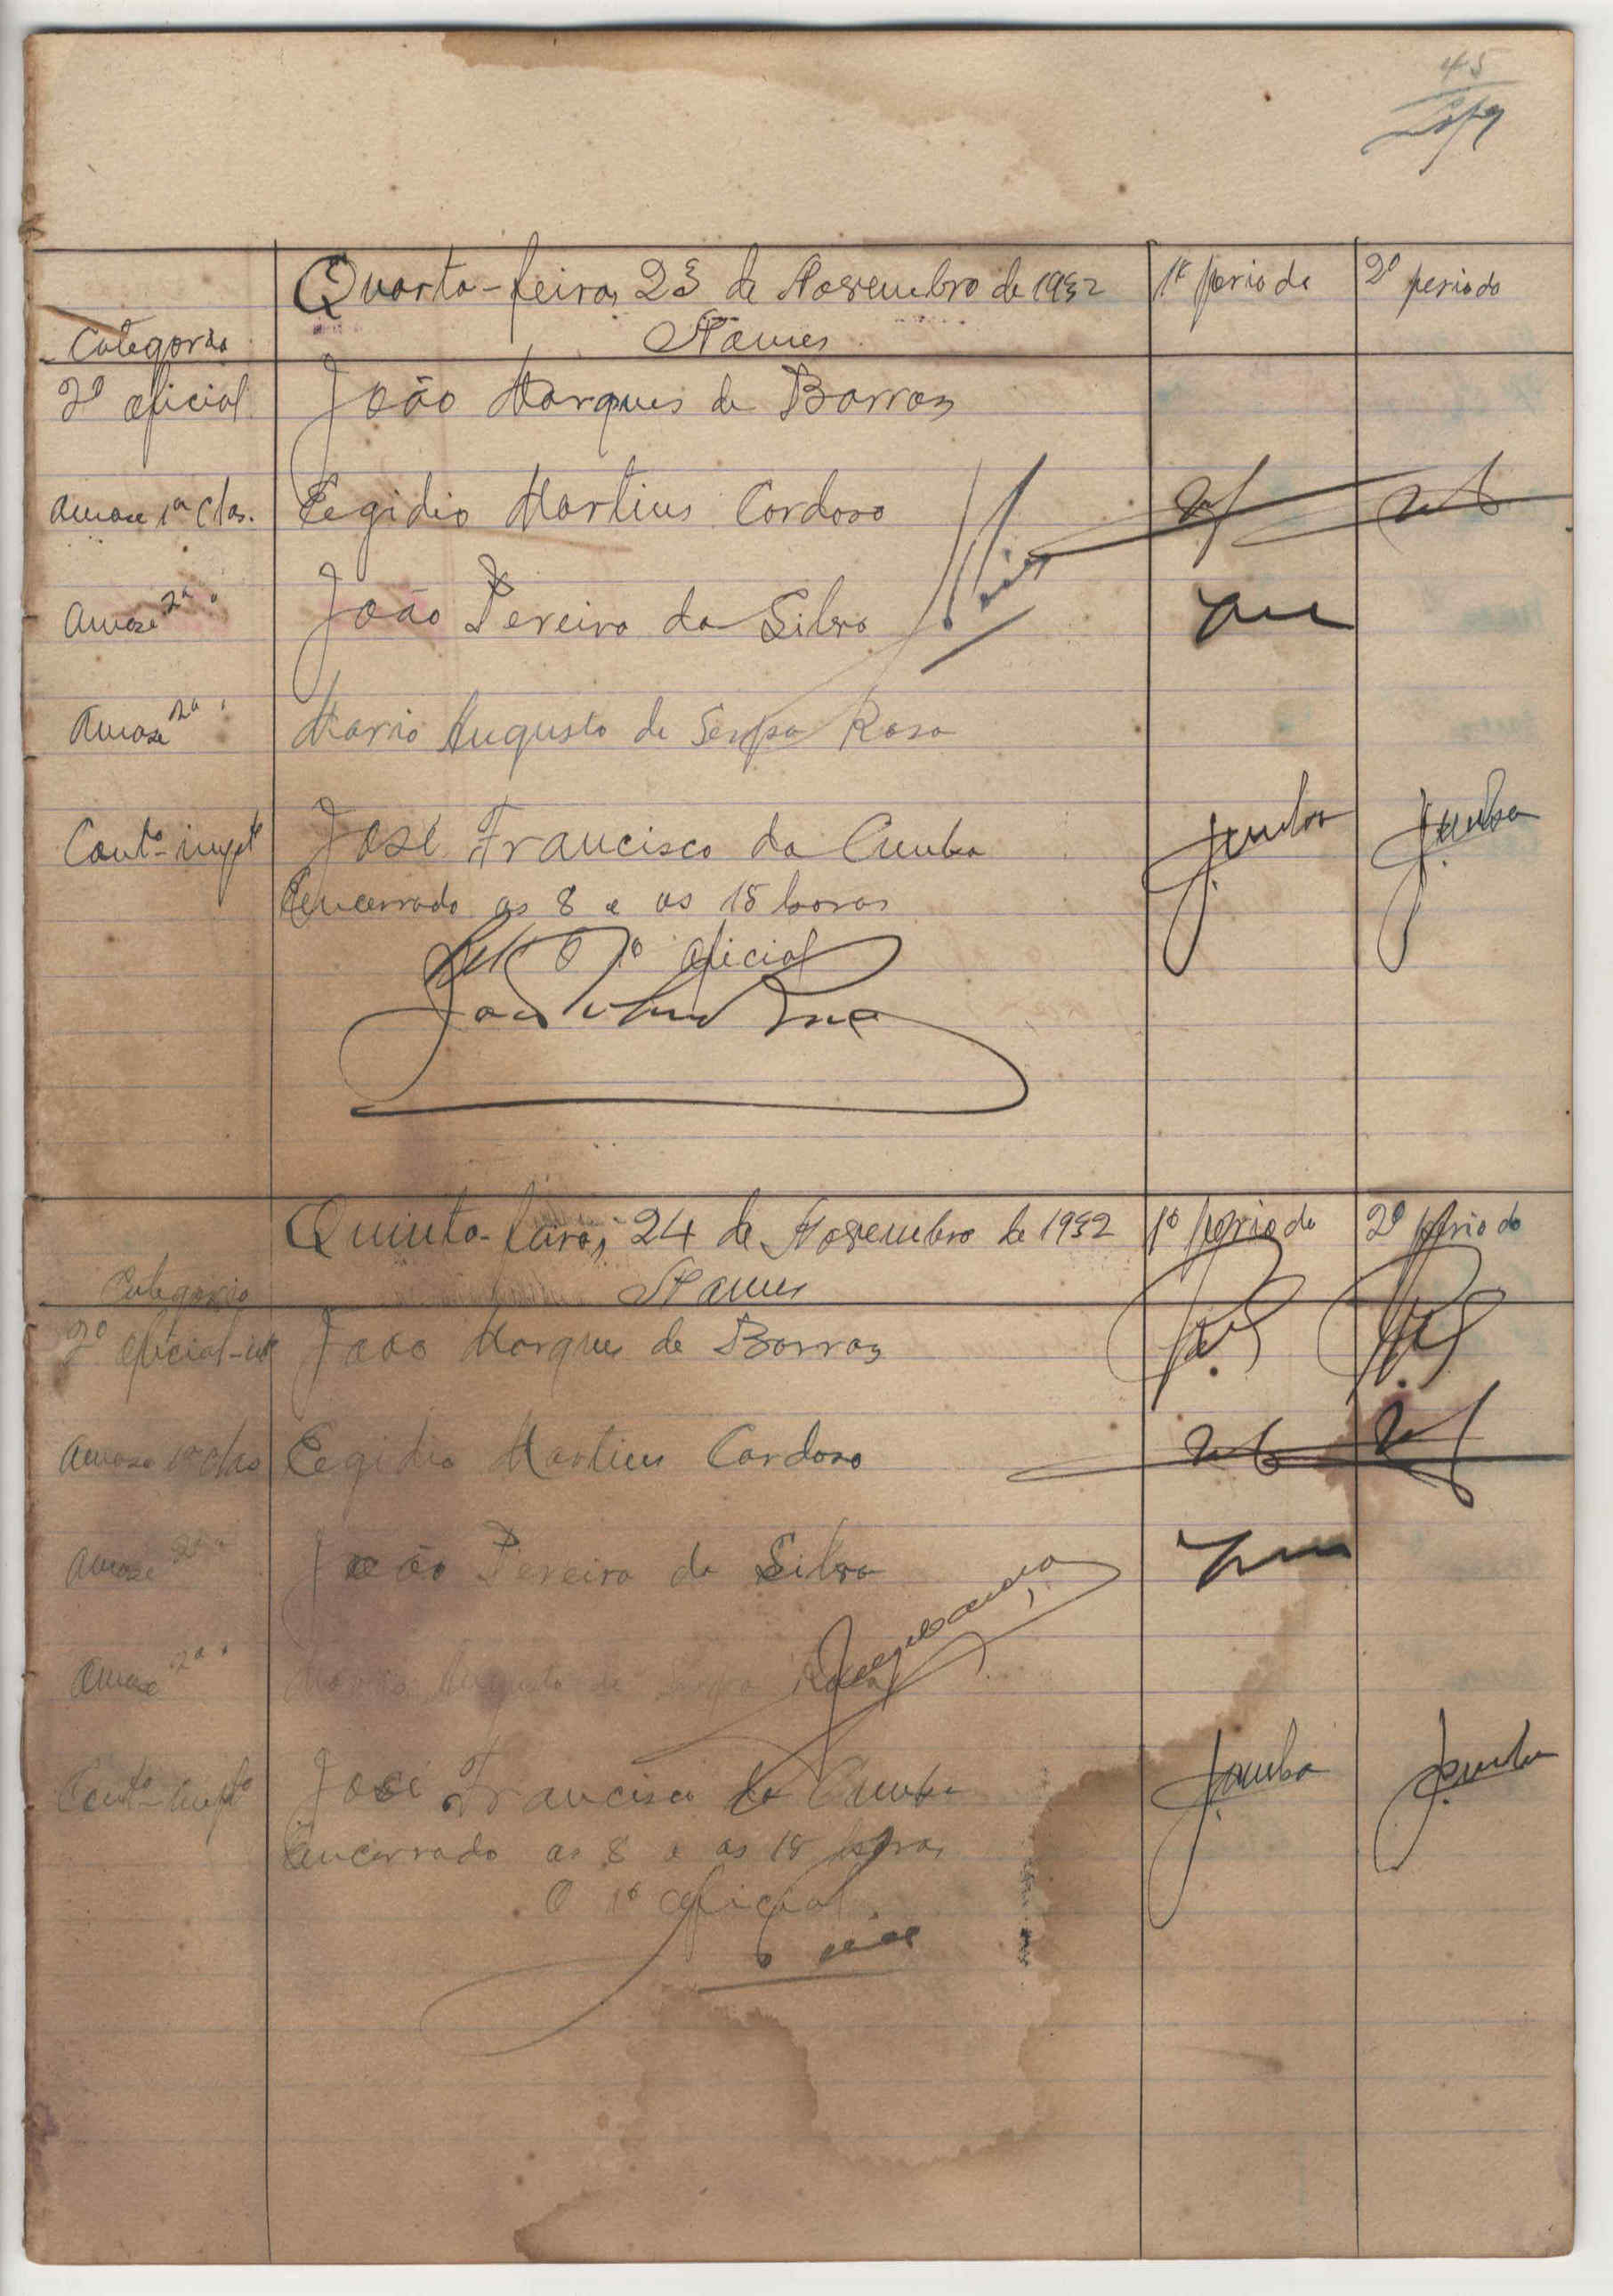 45
Quarta-feira, 23 de Novembro de 1932 1º periodo 2º periodo
Categoria Nomes
2º oficial João Marques de Barros
Amase 1ª Clas. Egidio Martins Cardoso
Amase 2ª " João Pereira da Silva
Amase 2ª " Mario Augusto de Serpa Rosa
José Francisco da Cunha JCunha JCunha
Encerrado as 8 e as 18 horas
O 1º oficial
Quinta-feira, 24 de Novembro de 1932 1º periodo 2º periodo
Categoria Nomes
2º oficial-int João Marques de Barros
Amase 1ª Clas Egidio Martins Cardoso
Amase 2ª " João Pereira da Silva
Amase 2ª " Mario Augusto de Serpa Rosa
José Francisco da Cunha JCunha JCunha
Encerrado as 8 e as 18 horas
O 1º oficial